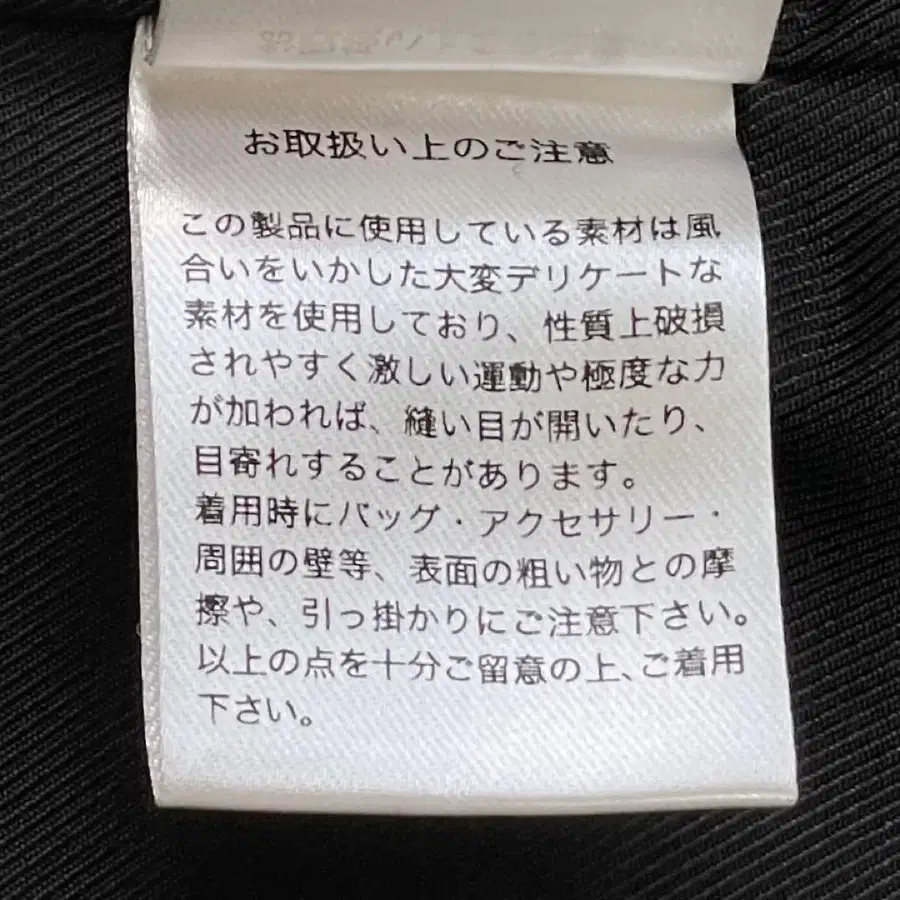 お取扱い上のご注意
この製品に使用している素材は風
合いをいかした大変デリケートな
素材を使用しており、性質上破損
されやすく激しい運動や極度な力
が加われば、縫い目が開いたり、
目寄れすることがあります。
着用時にバッグ・アクセサリー・
周囲の壁等、表面の粗い物との摩
擦や、引っ掛かりにご注意下さい。
以上の点を十分ご留意の上、ご着用
下さい。